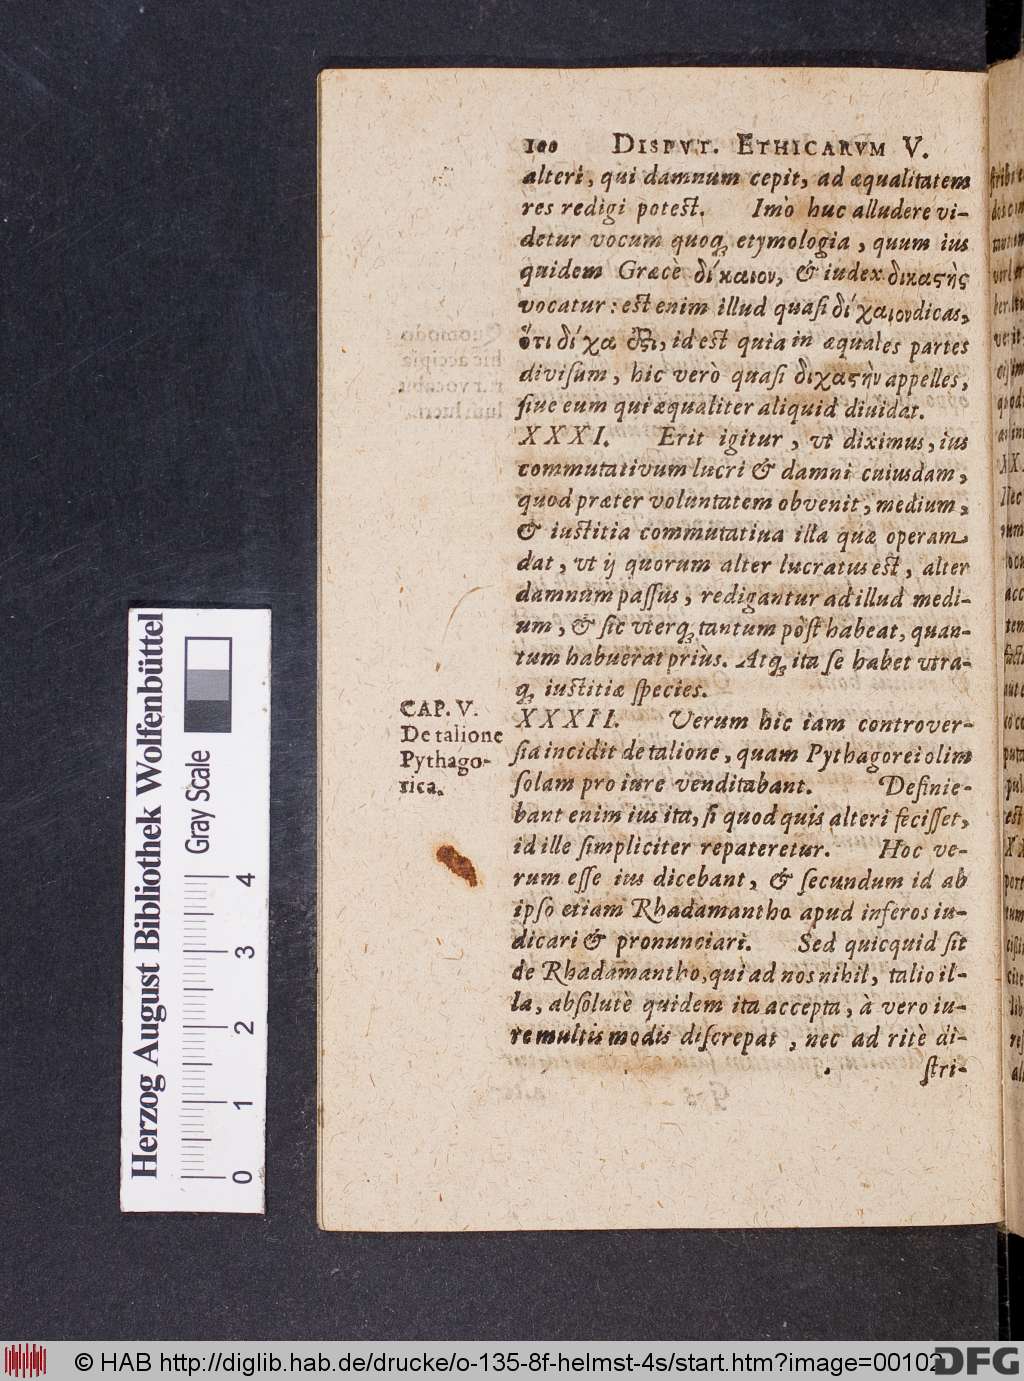 100 DISPVT. ETHICARVM V.
alteri, qui damnum cepit, ad æqualitatem
res redigi potest. Imò huc alludere vi-
detur vocum quoq; etymologia, quum ius
quidem Græcè δίκαιον, & iudex δικαςὴς
vocatur: est enim illud quaſi δίχαιον dicas,
ὅτι δίχα ὅξι, id est quia in æquales partes
diviſum, hic verò quaſi διχαςὴν appelles,
ſiue eum qui æqualiter aliquid diuidat.
XXXI. Erit igitur, vt diximus, ius
commutativum lucri & damni cuiusdam,
quod præter voluntatem obvenit, medium,
& iustitia commutatiua illa quæ operam
dat, vt ij quorum alter lucratus est, alter
damnum paſſus, redigantur ad illud medi-
um, & ſic vterq; tantum pòſt habeat, quan-
tum habuerat priùs. Atq; ita ſe habet vtra-
q; iustitiæ ſpecies.
CAP. V.
De talione
Pythago-
rica.
XXXII. Verum hic iam controver-
ſia incidit de talione, quam Pythagorei olim
ſolam pro iure venditabant. Definie-
bant enim ius ita, ſi quod quis alteri feciſſet,
id ille ſimpliciter repateretur. Hoc ve-
rum eſſe ius dicebant, & ſecundum id ab
ipſo etiam Rhadamantho apud inferos iu-
dicari & pronunciari. Sed quicquid ſit
de Rhadamantho, qui ad nos nihil, talio il-
la, abſolutè quidem ita accepta, à vero iu-
re multis modis diſcrepat, nec ad ritè di-
ſtri-
Herzog August Bibliothek Wolfenbüttel
Gray Scale
0 1 2 3 4
© HAB http://diglib.hab.de/drucke/o-135-8f-helmst-4s/start.htm?image=00102
DFG